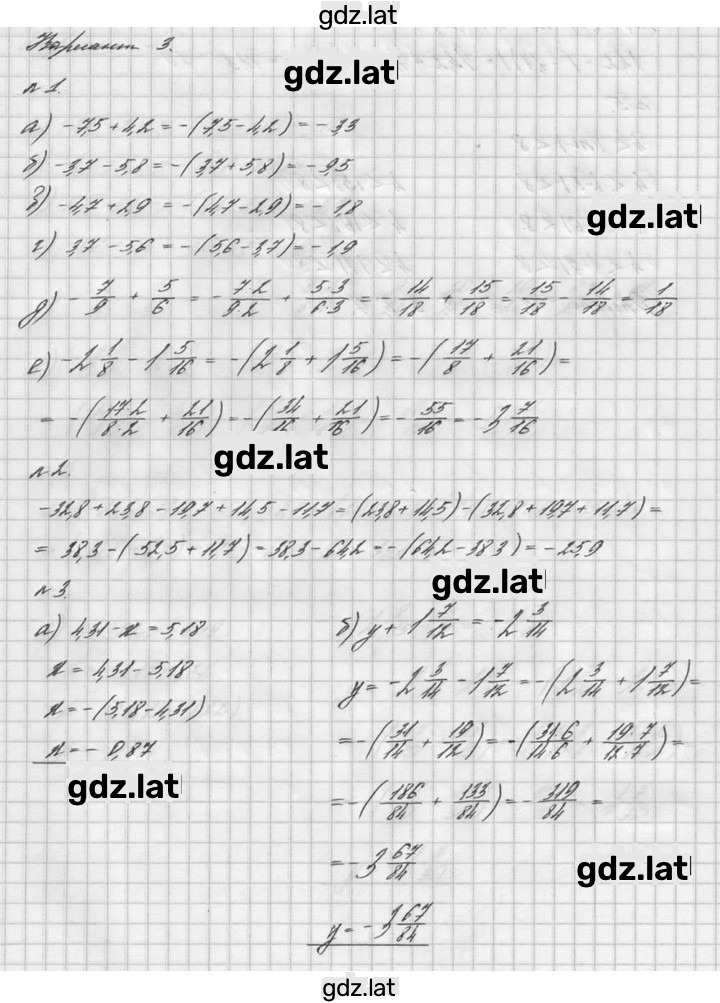 gdz.lat
Вариант 3.
gdz.lat
№1.
а) -7,5+4,2=-(7,5-4,2)=-3,3
б) -3,7-5,8=-(3,7+5,8)=-9,5
в) -4,7+2,9=-(4,7-2,9)=-1,8
gdz.lat
г) 3,7-5,6=-(5,6-3,7)=-1,9
д) -7/9 + 5/6 = -7·2/9·2 + 5·3/6·3 = -14/18 + 15/18 = 15/18 - 14/18 = 1/18
е) -2 1/8 - 1 5/16 = -(2 1/8 + 1 5/16) = -(17/8 + 21/16) =
= -(17·2/8·2 + 21/16) = -(34/16 + 21/16) = -55/16 = -3 7/16
gdz.lat
№2.
-32,8+23,8-19,7+14,5-11,7=(23,8+14,5)-(32,8+19,7+11,7)=
= 38,3-(52,5+11,7)=38,3-64,2=-(64,2-38,3)=-25,9
gdz.lat
№3.
а) 4,31-x=5,18
x=4,31-5,18
x=-(5,18-4,31)
x=-0,87
gdz.lat
б) y + 1 7/12 = -2 3/14
y = -2 3/14 - 1 7/12 = -(2 3/14 + 1 7/12) =
= -(31/14 + 19/12) = -(31·6/14·6 + 19·7/12·7) =
= -(186/84 + 133/84) = -319/84 =
= -3 67/84
gdz.lat
y = -3 67/84
gdz.lat